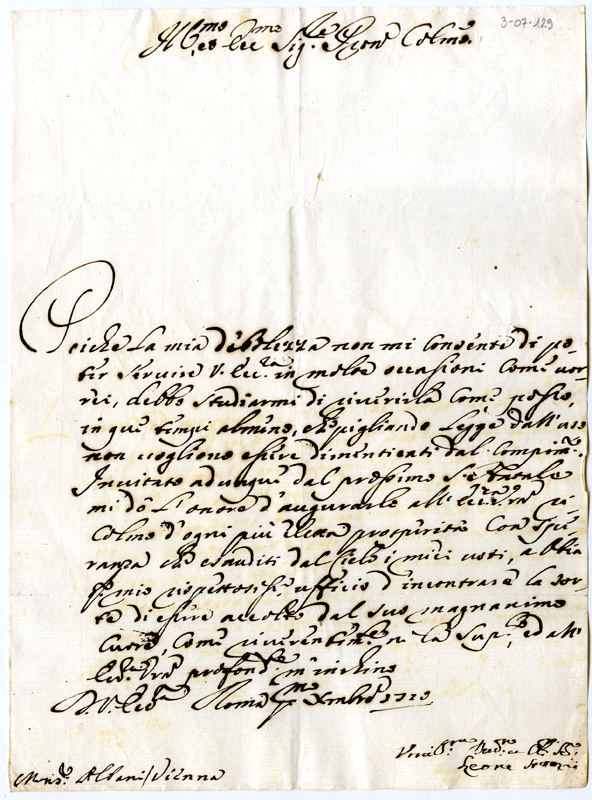 3-07-129
Ill.mo et Ecc.mo Sig.re Sig.re e Pron.e Colmo.
Poiche La mia debolezza non mi consente di po-
ter servire V. Ecc.za in molte occasioni come vor-
rei, debbo studiarmi di riverirla come posso,
in quei tempi almeno, che pigliando Legge dall'uso
non vogliono essere dimenticati dal compim.to
Invitato adunque dal prossimo S. Natale
mi dò L'onore d'augurarle all'Ecc.za Vra il
Colmo d'ogni più eletta prosperità con spe-
ranza che esauditi dal Cielo i miei voti, abbia
il mio rispettosiss.o ufficio d'incontrare la sor-
te di essere accolto dal suo magnanimo
Cuore, come riverentem.te n. La Sup.co, ed all'
Ecc.za Vra profond.te m'inchino
D. V. Ecc.za Roma p.mo Xmbre 1713
Leone
Mons.r Albani / Vienna